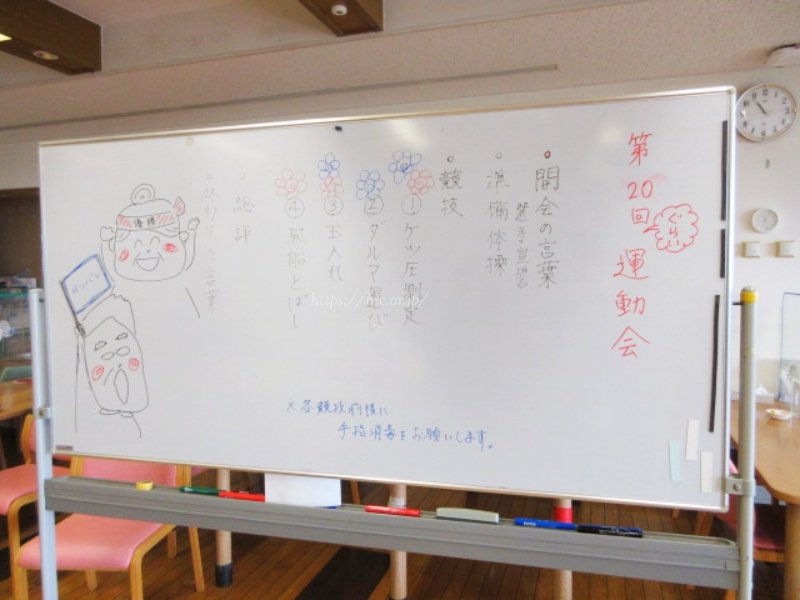 第20回運動会
ぐらい
・開会の言葉
選手宣誓
・準備体操
・競技
①ケツ圧測定
②ダルマ運び
③玉入れ
④風船とばし
・総評
・終わりの言葉
優勝
ガンバレ
※各競技前後に
手指消毒をお願いします。